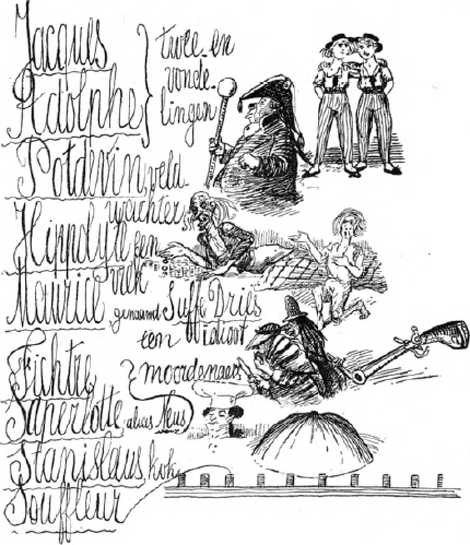 Jacques
Adolphe
twee en
vonde
lingen
Potdevin, veld
wachter
Hippolyte een
vrek
Maurice, genaamd Suffe Dries
een idioot
Fichtre
moordenaars
Saperlotte, alias Neus
Stanislaus, kok
Souffleur